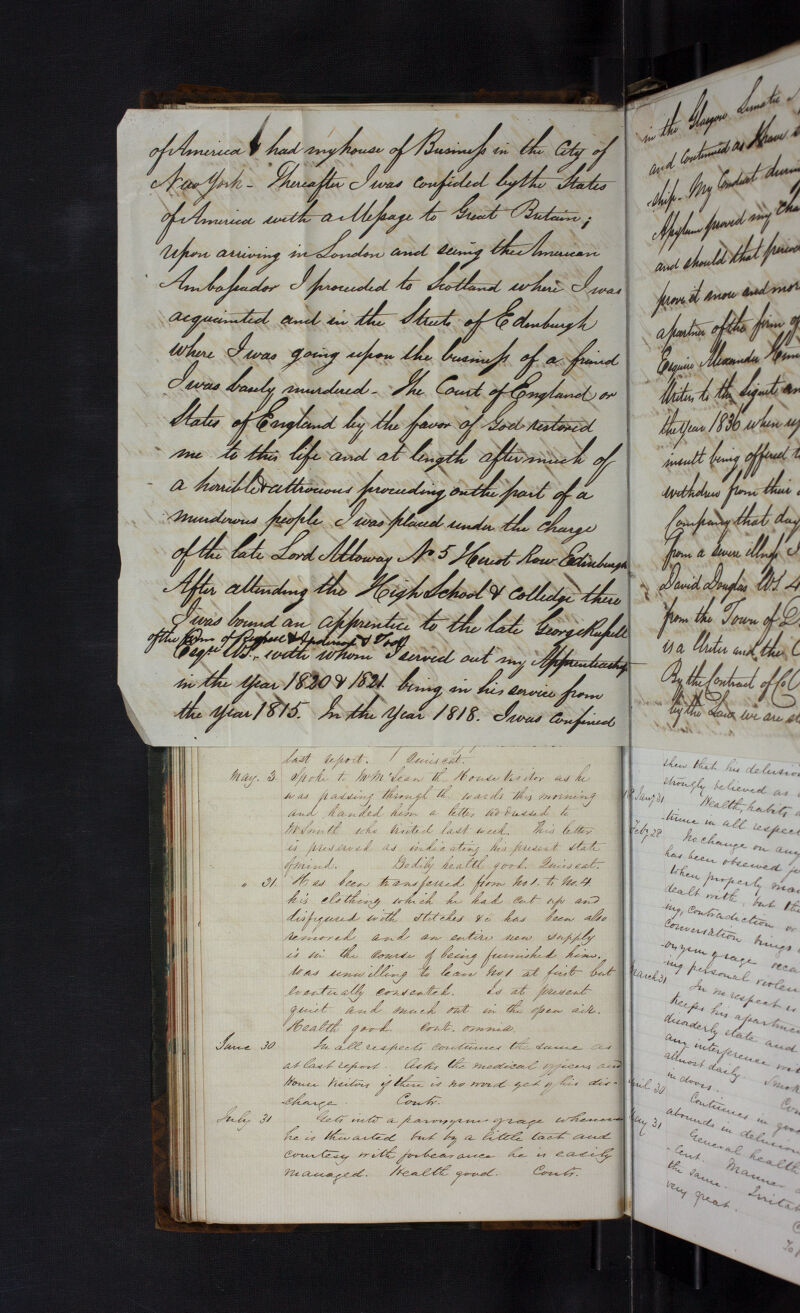 of America I had my house of Business in the City of
New York - Thereafter I was confided by the States
of America with a Message to Great Britain;
upon arriving in London and seeing the American
Ambassador I proceeded to Scotland where I was
acquainted and in the Streets of Edinburgh
where I was going upon the business of a friend
I was basely murdered - The Court of England or
States of England by the favor of God restored
me to this life and at length after much of
a horrible & attrocious proceeding on the part of a
murderous people I was placed under the charge
of the late Lord Alloway No 5 Heriot Row Edinburgh
After attending the High School & Colledge there
I was bound an apprentice to the late George Russell
of the Firm of Russell & Anderson & Tod
Esqre WS., with whom I served out my Apprenticeship
in the year 1820 & 1821. being in his service from
the year 1815. In the Year 1818. I was confined
last report. Quiescat.
May. 3. Spoke to Mr McLean the House Visitor as he
was passing through the wards this morning
and handed him a letter addressed to
Mr Smith who visited last week. This letter
is preserved as indicating his present state
of mind. Bodily health good. Quiescat.
" 31. Has been transferred from No 1. to No 4
his clothing which he had cut up and
disfigured with stitches &c has been also
removed and an entire new supply
is in the course of being furnished him.
Was unwilling to leave No 1 at first but
eventually consented. Is at present
quiet and much out in the open air.
Health good. Cont. omnia.
June 30 In all respects continues the same as
at last report. Asks the medical officers and
House Visitors if there is no word yet of his dis-
charge. Contr.
July 31 Gets into a paroxysm of rage whenever
he is thwarted but by a little tact and
courtesy with forbearance he is easily
managed. Health good. Contr.
in the Glasgow Lunatic
and Continued as I have
-ship - My Conduct during
Asylum proved my
and should that
prove it more and mor
a partner of the firm of
Esquire Alexander
Writers to the Signet an
the year 1836 when
insult being offered t
withdrew from their
Company that day
from a severe illness I
David Douglas WS 4
from the Town of
is a Writer and the C
By the Contract of
by the Law we are
shew that his delusio
strongly believed as
Jany 31 Health, habits
-tinue in all respect
Feby 28 No change on any
has been observed
When properly man
dealt with, but the
ing, contradiction or
conversation brings
oxysm of rage
ing personal violen
March 31 In no respect
Keeps his apartmen
disorderly state and
any interference
almost daily.
in doors.
April 30 Continues in good
abounds in delusion
May 31 General health
-lent. Manner
the same. Irritab
very great.